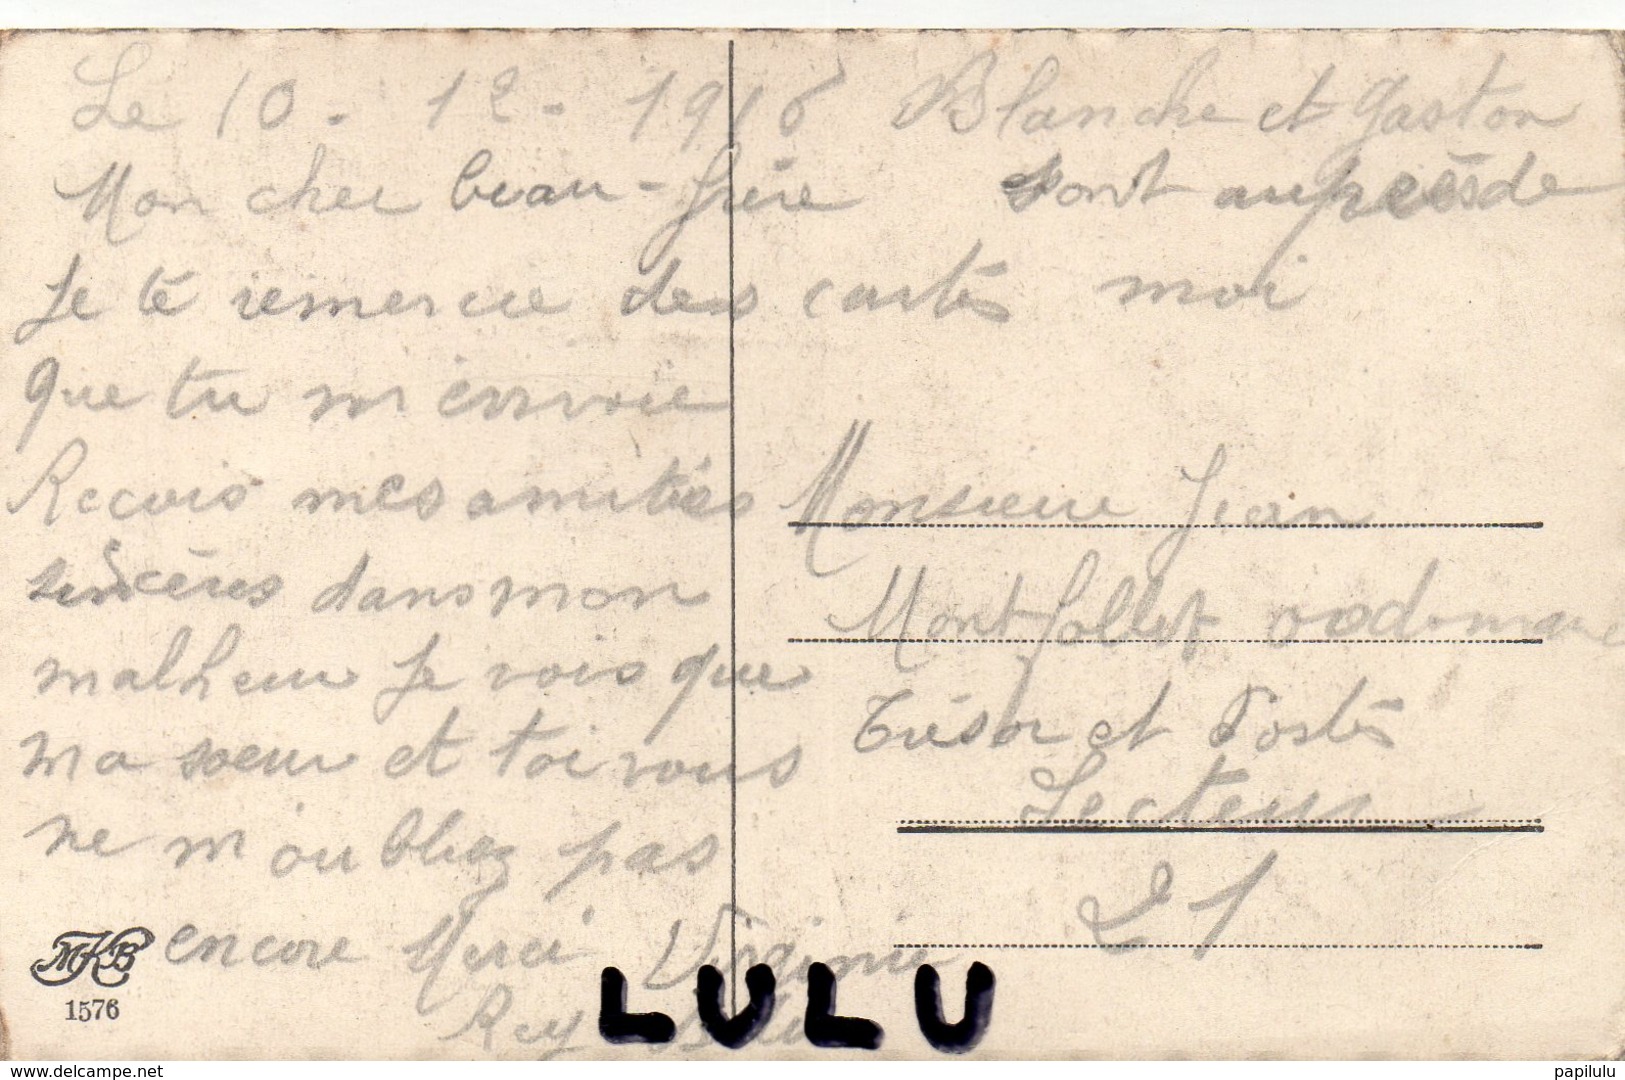 Le 10 - 12 - 1916
Mon cher beau-frère
Je te remercie des cartes
que tu m'envoie
Reçois mes amitiés
sincères dans mon
malheur Je vois que
ma soeur et toi vous
ne m'oubliez pas
encore Merci Virginie
Blanche et Gaston
sont auprès de
moi
Monsieur Jean
Montfollet
Trésor et Postes
Secteur
21
MKB
1576
LULU
www.delcampe.net
papilulu